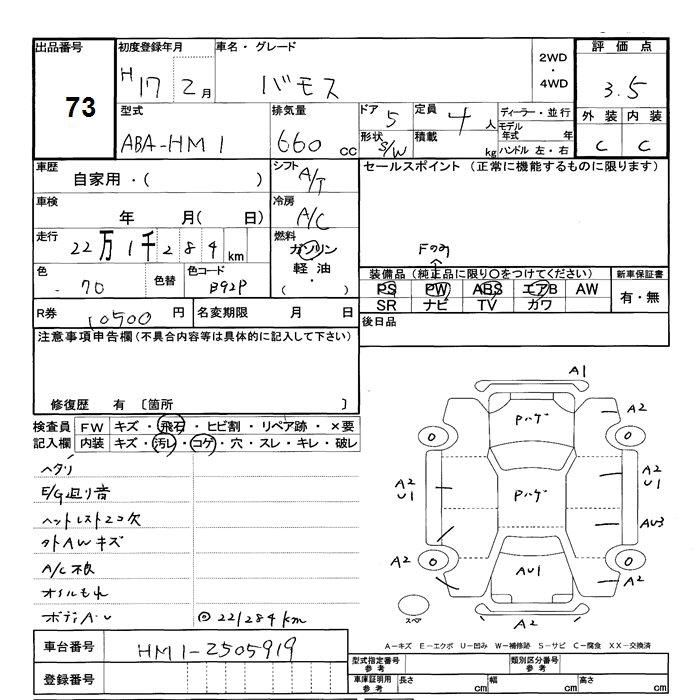 出品番号 初度登録年月 車名・グレード 評価点
73
H17 2月 バモス 2WD・4WD 3.5
型式 排気量 ドア 5 定員 4人 ディーラー・並行 外装 内装
ABA-HM1 660cc 形状 S/W 積載 kg モデル年式 年 C C
ハンドル 左・右
車歴 シフト セールスポイント (正常に機能するものに限ります)
自家用・( ) A/T
車検 冷房
年 月( 日) A/C
走行 燃料
22万1千284km ガソリン
軽油
・
( )
Fのみ
色 色替 色コード 装備品 (純正品に限り○をつけてください) 新車保証書
70 B92P PS PW ABS エアB AW 有・無
SR ナビ TV カワ
R券 10500円 名変期限 月 日 後日品
注意事項申告欄(不具合内容等は具体的に記入して下さい)
修復歴 有 〔箇所 〕
検査員 FW キズ・飛石・ヒビ割・リペア跡・×要
記入欄 内装 キズ・汚レ・コゲ・穴・スレ・キレ・破レ
ヘタリ
E/G廻り音
ヘットレスト2コ欠
外AWキズ
A/C不良
オイルもれ
ボディA・U ◎221284km
A1
A2 Pハゲ A2
0 0
A2 U1 Pハゲ A2 U1
AU3
A2 AU1 A2
0 0
スペア A2
A-キズ E-エクボ U-凹み W-補修跡 S-サビ C-腐食 XX-交換済
車台番号 HM1-2505919
登録番号
型式指定番号 参考 類別区分番号 参考
車庫証明用 参考 長さ cm 幅 cm 高さ cm